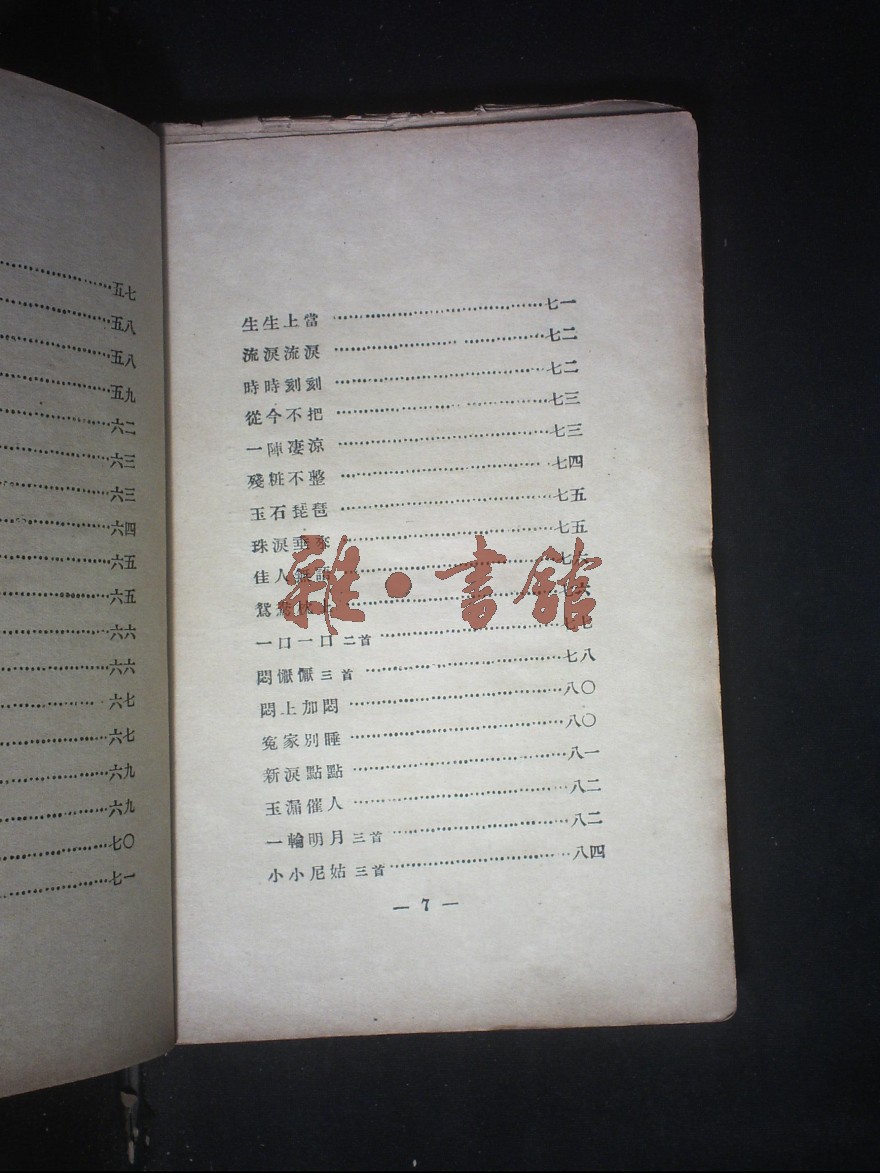 五七
五八
五八
五九
六二
六三
六三
六四
六五
六五
六六
六六
六七
六七
六九
六九
七〇
七一
生生上當……七一
流淚流淚……七二
時時刻刻……七二
從今不把……七三
一陣凄涼……七三
殘粧不整……七四
玉石琵琶……七五
珠淚垂來……七五
佳人無語……七六
鴛鴦枕上……七六
一口一口 二首……七七
悶懨懨 三首……七八
悶上加悶……八〇
冤家別睡……八〇
新淚點點……八一
玉漏催人……八二
一輪明月 三首……八二
小小尼姑 三首……八四
— 7 —
雜·書館